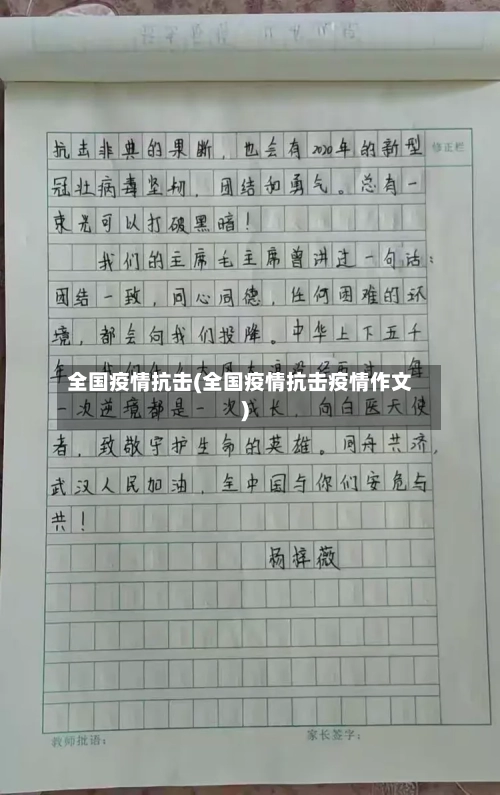 抗击非典的果断，也会有2020年的新型
修正栏
冠壮病毒坚韧，团结和勇气。总有一
束光可以打破黑暗！
我们的主席毛主席曾讲过一句话：
团结一致，同心同德，任何困难的环
境，都会向我们投降。中华上下五千
年
每
全国疫情抗击(全国疫情抗击疫情作文
)
一次逆境都是一次成长，向白医天使
者，致敬守护生命的英雄。同舟共济，
武汉人民加油，全中国与你们安危与
共！
杨梓薇
教师批语：
家长签字：